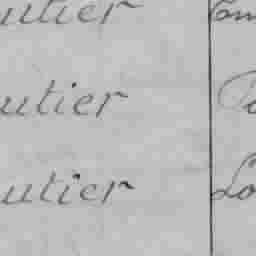 utier
utier
utier Lo